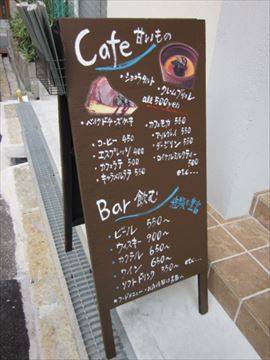 Cafe 甘いもの
・ショコラタルト
・クレームブリュレ
all 500yen
・ベイクドチーズケーキ
・コーヒー 450
・エスプレッソ 400
・カフェラテ 550
・キャラメルラテ 550
・カフェモカ 550
・アールグレイ 550
・ダージリン 550
・ロイヤルミルクティー
700
etc...
Bar 飲む
・ビール 550〜
・ウィスキー 900〜
・カクテル 650〜
・ワイン 650〜
・ソフトドリンク 350〜 etc...